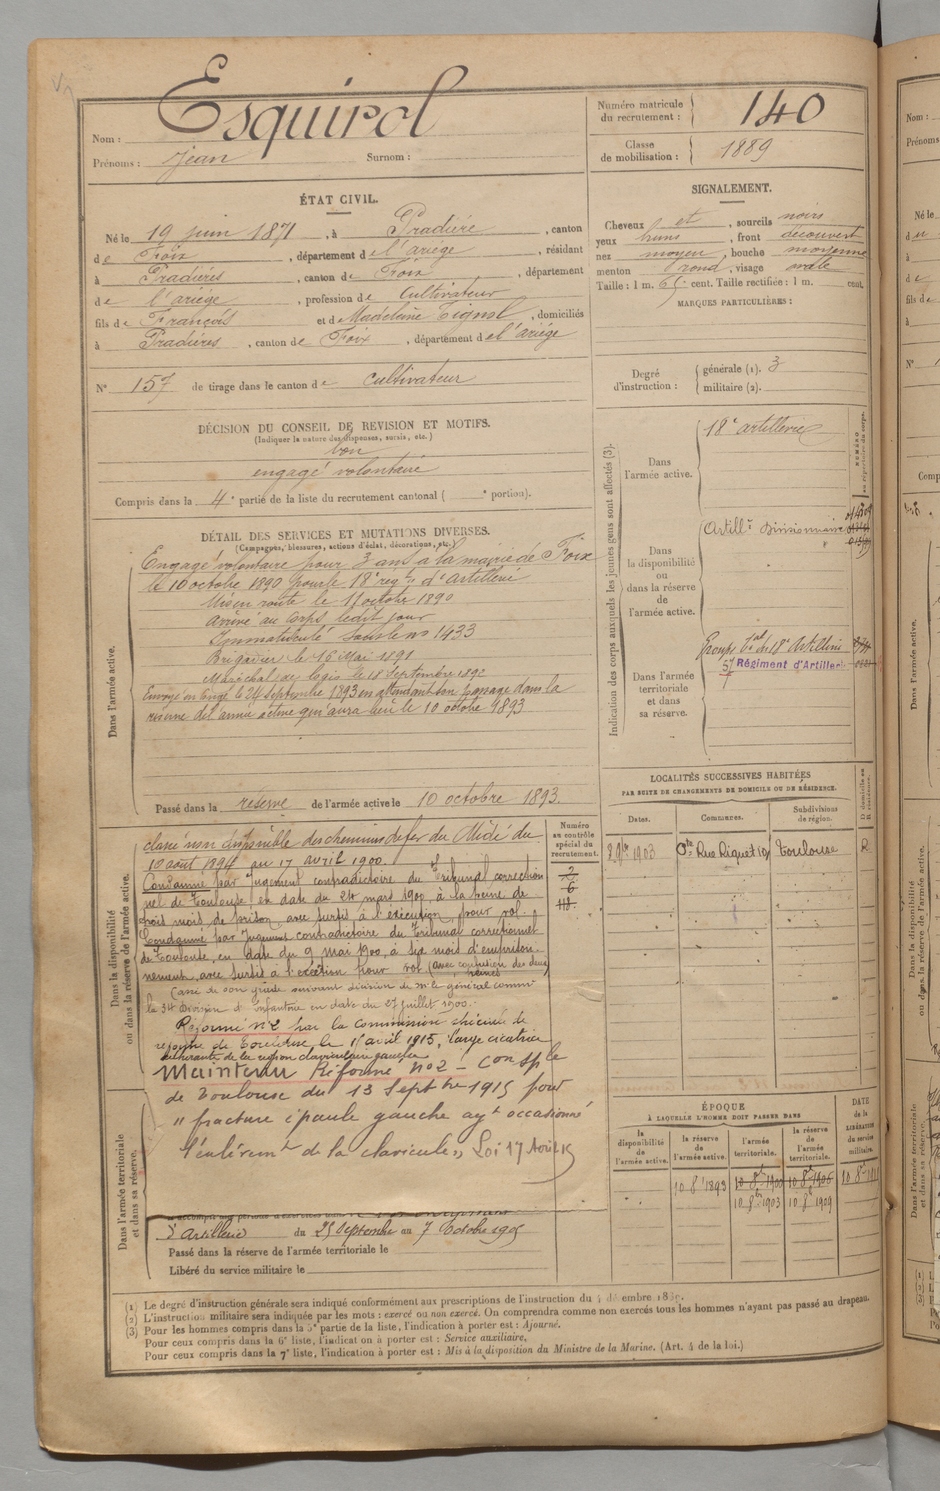 Nom : Esquirol
Prénoms : Jean Surnom :
Numéro matricule du recrutement : 140
Classe de mobilisation : 1889
ÉTAT CIVIL.
Né le 19 juin 1871, à Pradière, canton
de Foix, département de l'ariége, résidant
à Pradières, canton de Foix, département
de l'ariége, profession de Cultivateur
fils de François et de Madeleine Tignol, domiciliés
à Pradières, canton de Foix, département de l'ariége
N° 157 de tirage dans le canton de Cultivateur
SIGNALEMENT.
Cheveux et, sourcils noirs
yeux bruns, front découvert
nez moyen, bouche moyenne
menton rond, visage ovale
Taille : 1 m. 65 cent. Taille rectifiée : 1 m. cent.
MARQUES PARTICULIÈRES :
Degré d'instruction :
générale (1). 3
militaire (2).
DÉCISION DU CONSEIL DE REVISION ET MOTIFS.
(Indiquer la nature des dispenses, sursis, etc.)
bon
engagé volontaire
Compris dans la 4e partie de la liste du recrutement cantonal ( e portion).
DÉTAIL DES SERVICES ET MUTATIONS DIVERSES.
(Campagnes, blessures, actions d'éclat, décorations, etc.)
Dans l'armée active.
Engagé volontaire pour 3 ans à la mairie de Foix
le 10 octobre 1890 pour le 18e regt d'Artillerie
Mis en route le 11 octobre 1890
Arrivé au Corps ledit jour
Immatriculé sous le no 1433
Brigadier le 16 Mai 1891
Maréchal des logis le 18 Septembre 1892
Envoyé en congé le 24 septembre 1893 en attendant son passage dans la
réserve de l'armée active qui aura lieu le 10 octobre 1893
Passé dans la réserve de l'armée active le 10 octobre 1893.
Indication des corps auxquels les jeunes gens sont affectés (3).
NUMÉRO au répertoire du corps.
Dans l'armée active.
18e artillerie
Dans la disponibilité ou dans la réserve de l'armée active.
Artillie Divisionnaire
Dans l'armée territoriale et dans sa réserve.
Groupe tal du 18e Artillerie
57 Régiment d'Artillerie
LOCALITÉS SUCCESSIVES HABITÉES
PAR SUITE DE CHANGEMENTS DE DOMICILE OU DE RÉSIDENCE.
Dates. Communes. Subdivisions de région. D domicile ou R résidence.
2 9bre 1903 Rue Riquet 19 Toulouse R
Dans la disponibilité ou dans la réserve de l'armée active.
Numéro au contrôle spécial du recrutement.
classé non disponible des chemins de fer du Midi du
10 août 1894 au 17 avril 1900
Condamné par Jugement contradictoire du Tribunal correction
nel de Toulouse, en date du 24 mars 1900, à la peine de
trois mois de prison, avec sursis à l'exécution, pour vol.
Condamné par Jugement contradictoire du Tribunal correctionnel
de Toulouse, en date du 9 mai 1900, à six mois d'emprison-
nement avec sursis à l'exécution pour vol (avec confusion des deux peines)
Cassé de son grade suivant décision de Mr le général commt
la 34e Division d'Infanterie en date du 27 juillet 1900.
Réformé n°2 par la commission spéciale de
réforme de Toulouse, le 15 avril 1915, large cicatrice
adhérente de la région claviculaire gauche
Maintenu Réformé n°2 - Con sple
de Toulouse du 13 Septbre 1915 pour
"fracture épaule gauche ayt occasionné
l'enlèvemt de la clavicule" Loi 17 Avril 15
Dans l'armée territoriale et dans sa réserve.
d'Artillerie du 25 Septembre au 7 Octobre 1905
Passé dans la réserve de l'armée territoriale le
Libéré du service militaire le
ÉPOQUE
À LAQUELLE L'HOMME DOIT PASSER DANS
la disponibilité de l'armée active. la réserve de l'armée active. l'armée territoriale. la réserve de l'armée territoriale. DATE de la LIBÉRATION du service militaire.
10 8e 1893 10 8bre 1900 10 8e 1906
10 8bre 1903 10 8e 1909
(1) Le degré d'instruction générale sera indiqué conformément aux prescriptions de l'instruction du
(2) L'instruction militaire sera indiquée par les mots : exercé ou non exercé. On comprendra comme non exercés tous les hommes n'ayant pas passé au drapeau.
(3) Pour les hommes compris dans la 5e partie de la liste, l'indication à porter est : Ajourné.
Pour ceux compris dans la 6e liste, l'indication à porter est : Service auxiliaire.
Pour ceux compris dans la 7e liste, l'indication à porter est : Mis à la disposition du Ministre de la Marine. (Art. 4 de la loi.)